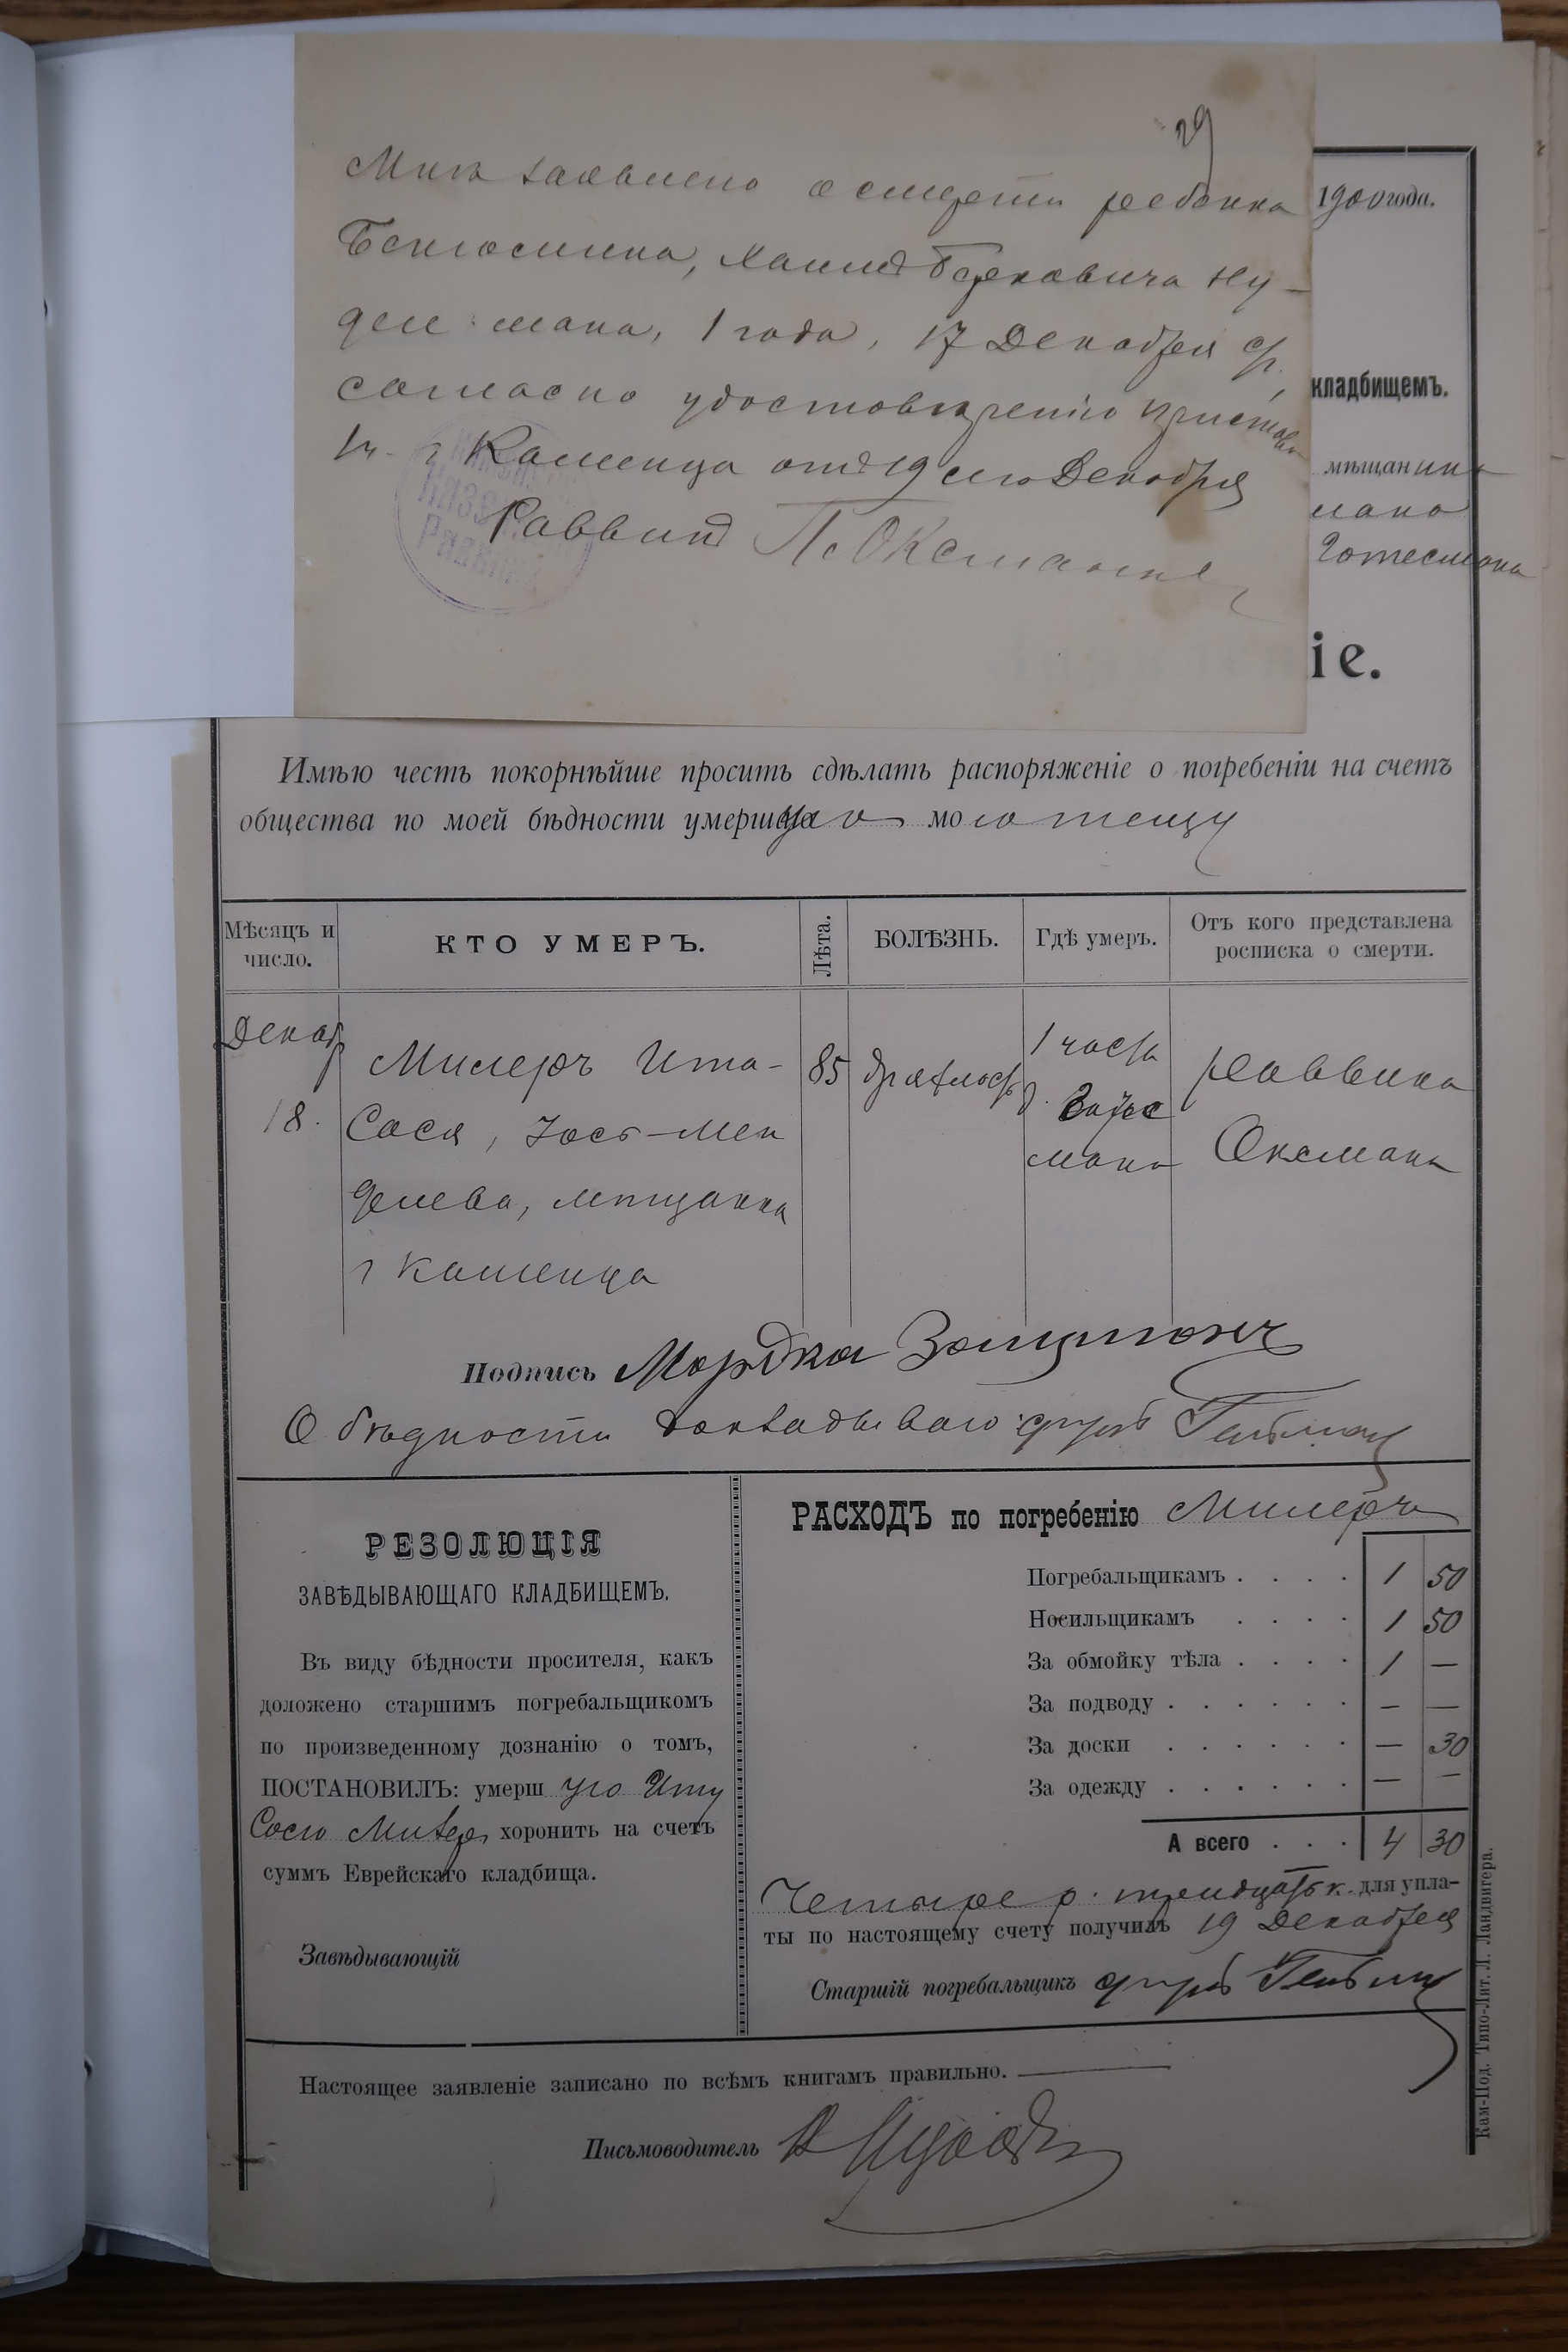 29
Мнѣ заявлено о смерти ребенка
Бенюмина, Хаимъ Берковича Ну-
дель мана, 1 года, 17 Декабря с/г.
согласно удостовѣренію пристава
1ч. г Каменца отъ 19 сего Декабря
Раввинъ П. Оксманъ
Казен
Раввинъ
1900 года.
кладбищемъ.
мѣщанина
мана
Готесмана
іе.
Имѣю честь покорнѣйше просить сдѣлать распоряженіе о погребеніи на счетъ
общества по моей бѣдности умершую мою тещу
Мѣсяцъ и число.
КТО УМЕРЪ.
Лѣта.
БОЛѢЗНЬ.
Гдѣ умеръ.
Отъ кого представлена росписка о смерти.
Декаб
18.
Милеръ Ита-
Сося, Іось-Мен
делева, мѣщанка
г Каменца
85
дряхлость
1 часть
д.
мана
раввина
Оксмана
Подпись Мордка
О бѣдности докладываю
РЕЗОЛЮЦІЯ
ЗАВѢДЫВАЮЩАГО КЛАДБИЩЕМЪ.
Въ виду бѣдности просителя, какъ
доложено старшимъ погребальщикомъ
по произведенному дознанію о томъ,
ПОСТАНОВИЛЪ: умершую Иту
Сосю Милер хоронить на счетъ
суммъ Еврейскаго кладбища.
Завѣдывающій
РАСХОДЪ по погребенію Милеръ
Погребальщикамъ . . . . 1 50
Носильщикамъ . . . . 1 50
За обмойку тѣла . . . . 1 —
За подводу . . . . . . — —
За доски . . . . . . — 30
За одежду . . . . . . — —
А всего . . . 4 30
Четыре р. тридцать к. для упла-
ты по настоящему счету получилъ 19 Декабря
Старшій погребальщикъ
Настоящее заявленіе записано по всѣмъ книгамъ правильно.
Письмоводитель
Кам-Под. Типо-Лит. Л. Ландвигера.